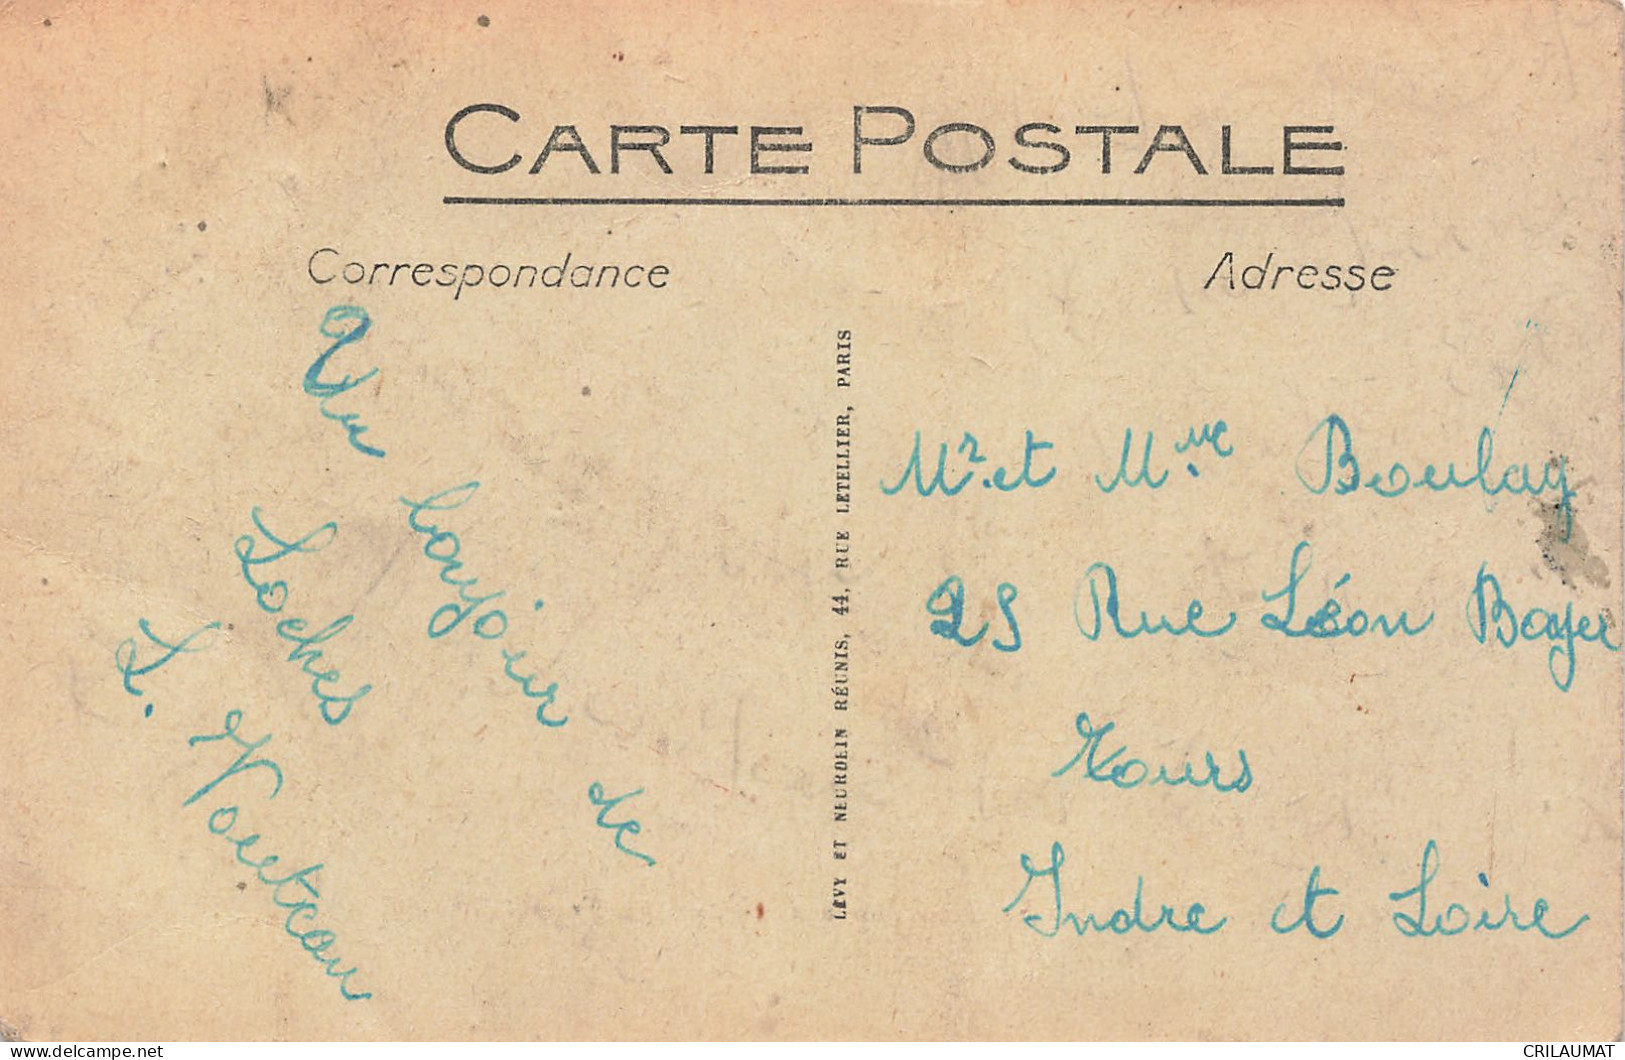 CARTE POSTALE
Correspondance
Adresse
Un bonjour de
Loches
L. Nouteau
LEVY ET NEURDEIN RÉUNIS, 44, RUE LETELLIER, PARIS
Mr. et Mme Boulay
25 Rue Léon Boyer
Tours
Indre et Loire
delcampe.net
CRILAUMAT